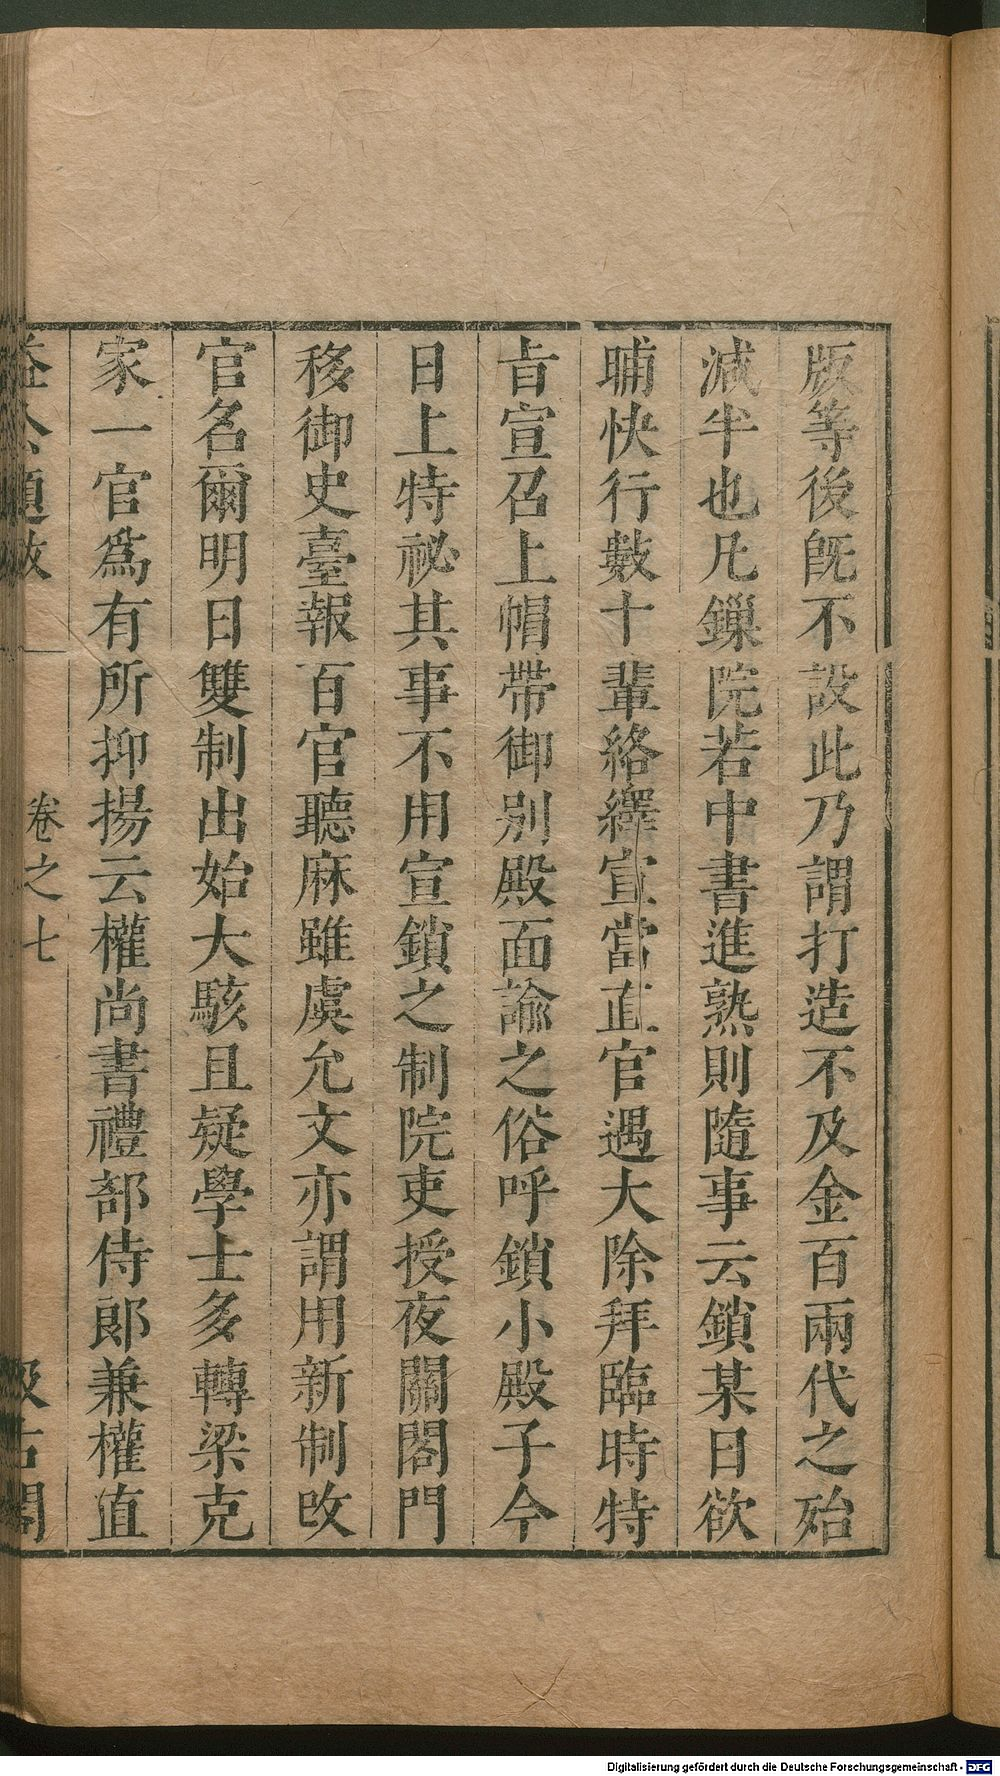 版等後旣不設此乃謂打造不及金百兩代之殆
減半也凡鏁院若中書進熟則隨事云鎖某日欲
晡快行數十輩絡繹宣當直官遇大除拜臨時特
㫖宣召上帽帶御别殿面諭之俗呼鎖小殿子今
日上特祕其事不用宣鎖之制院吏授夜關閤門
移御史臺報百官聽麻雖虞允文亦謂用新制改
官名爾明日雙制出始大駭且疑學士多轉梁克
家一官爲有所抑揚云權尚書禮部侍郎兼權直
益公題跋
卷之七
汲古閣
Digitalisierung gefördert durch die Deutsche Forschungsgemeinschaft - DFG